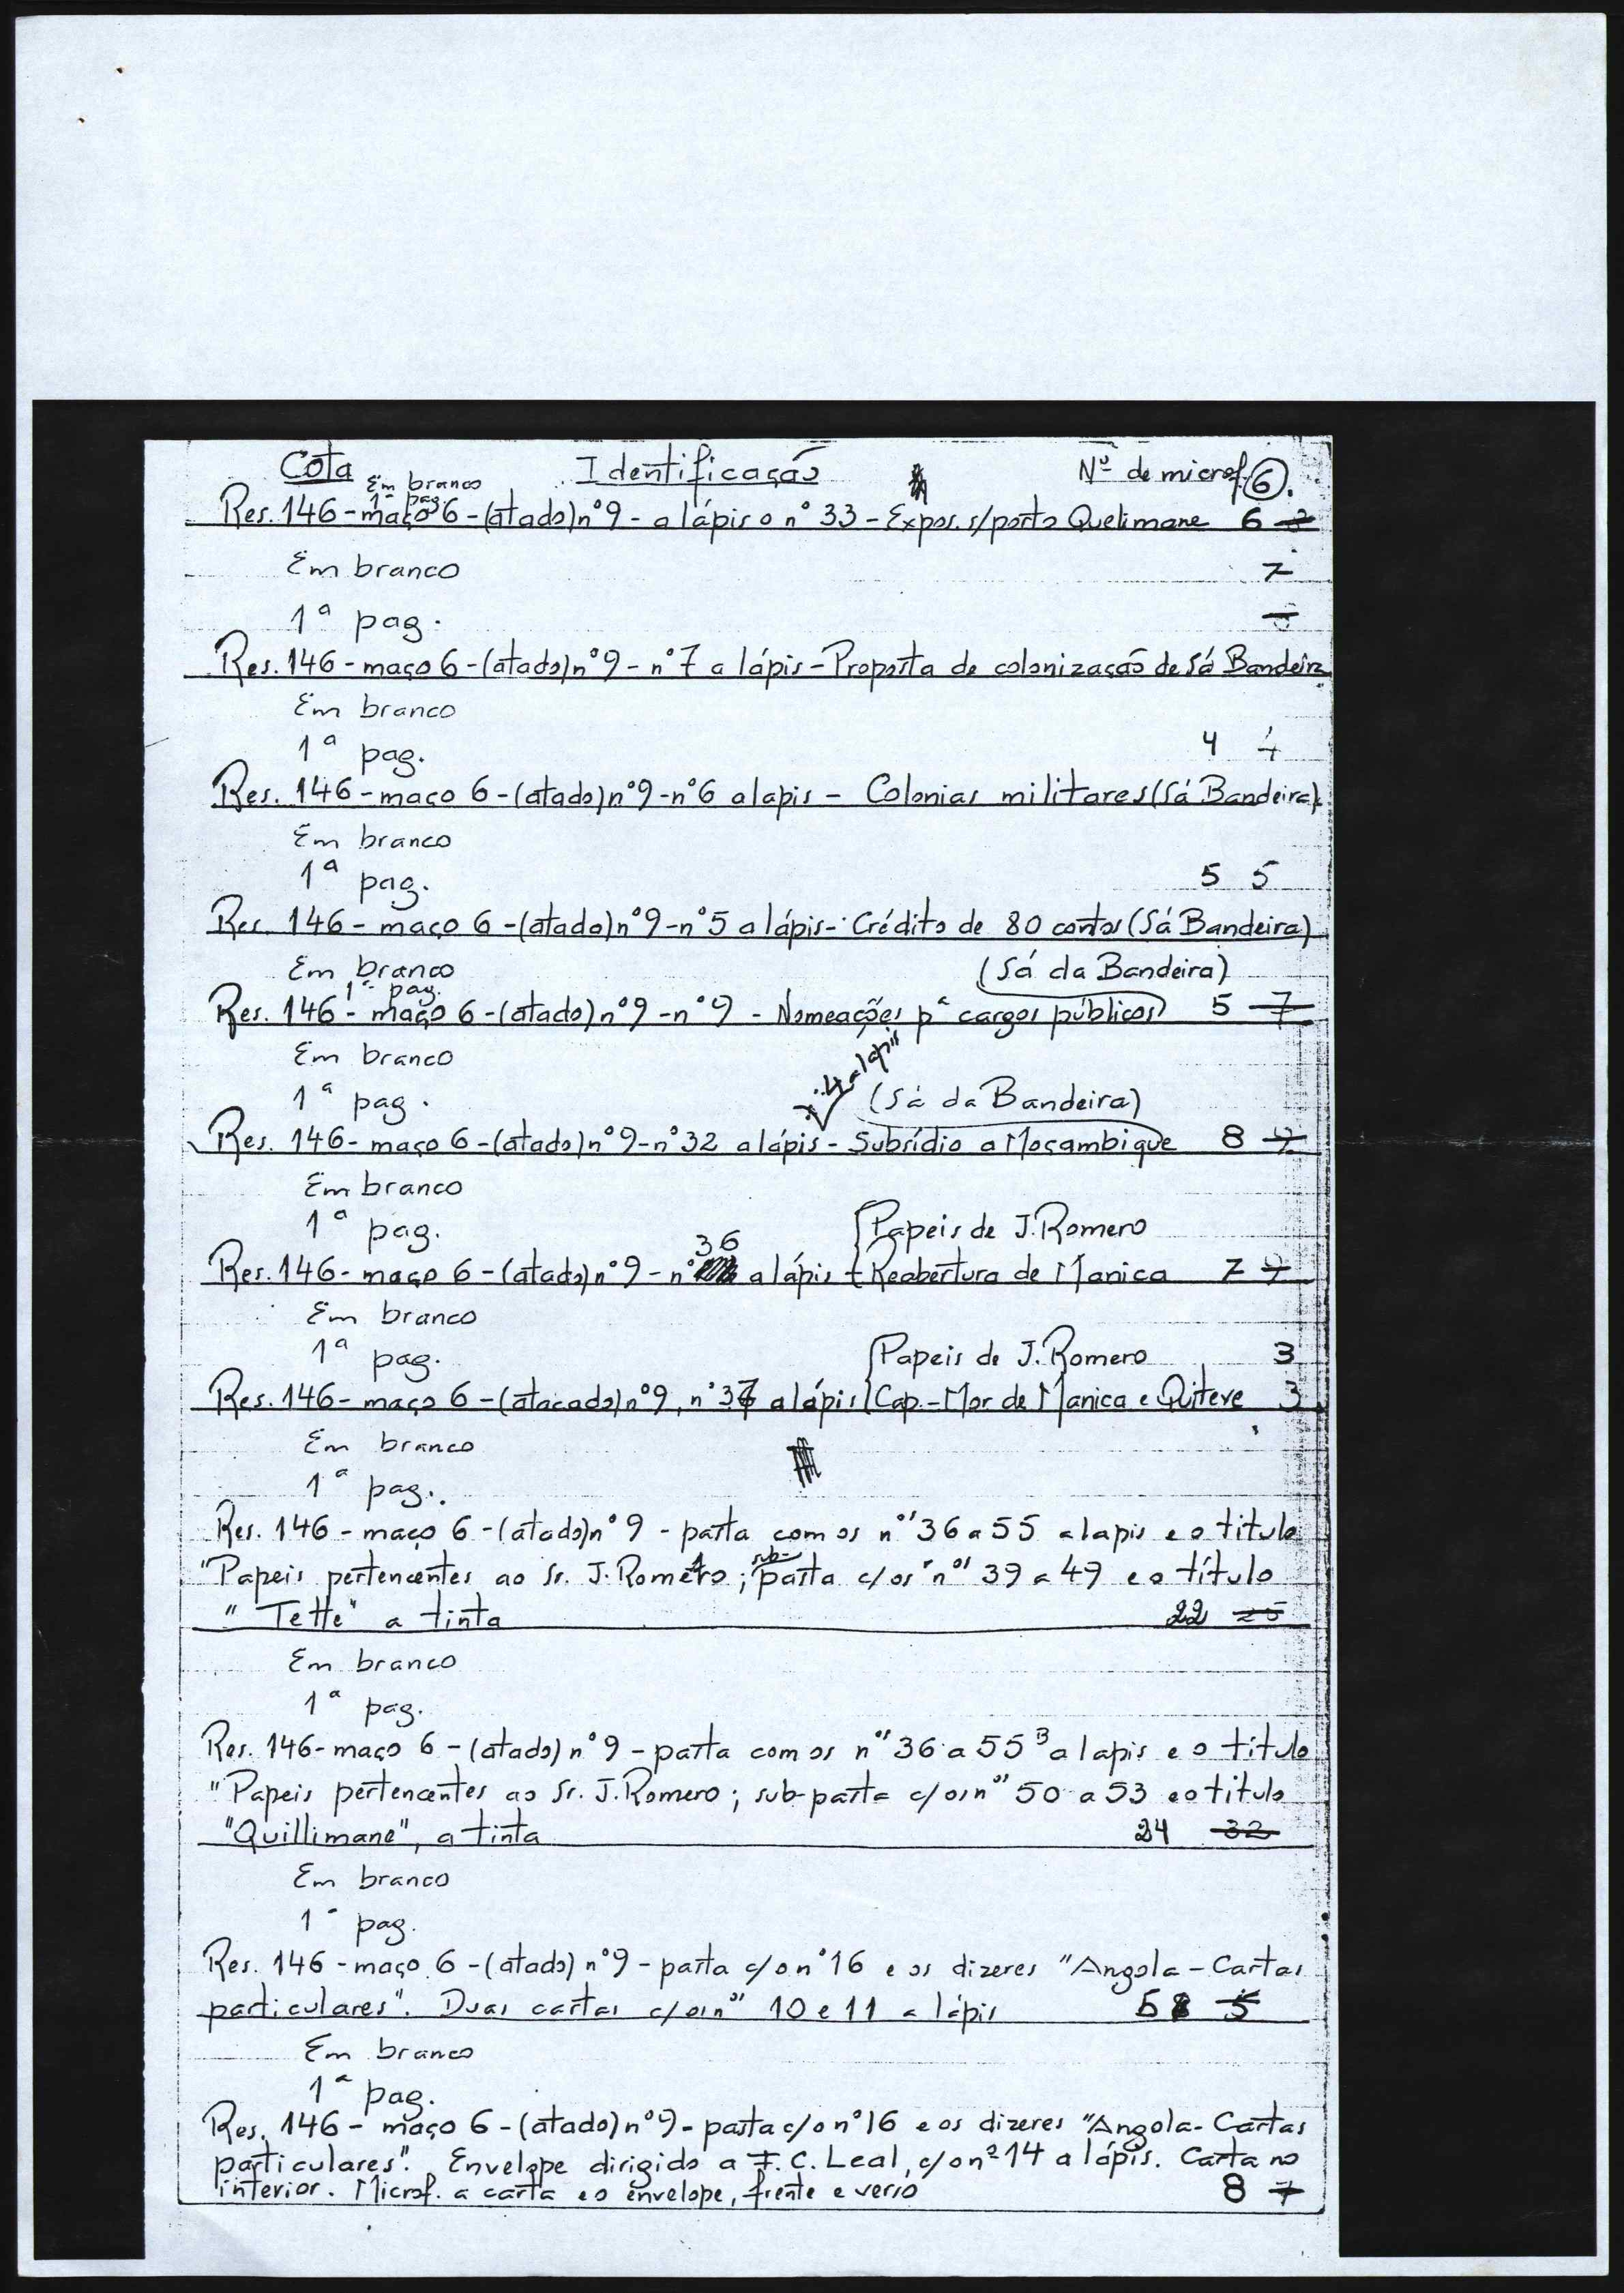 Cota Identificação Nº de microf. 6.
Em branco
1ª pag.
Res. 146 - maço 6 - (atado) nº 9 - a lápis o nº 33 - Expos. s/ porto Quelimane 6
Em branco 7
1ª pag.
Res. 146 - maço 6 - (atado) nº 9 - nº 7 a lápis - Proposta de colonização de Sá Bandeira
Em branco
1ª pag. 4 4
Res. 146 - maço 6 - (atado) nº 9 - nº 6 a lapis - Colonias militares (Sá Bandeira)
Em branco
1ª pag. 5 5
Res. 146 - maço 6 - (atado) nº 9 - nº 5 a lápis - Crédito de 80 contos (Sá Bandeira)
Em branco (Sá da Bandeira)
1ª pag.
Res. 146 - maço 6 - (atado) nº 9 - nº 9 - Nomeações pª cargos públicos 5 7
Em branco
nº 4 a lapis
1ª pag. (Sá da Bandeira)
Res. 146 - maço 6 - (atado) nº 9 - nº 32 a lápis - Subsídio a Moçambique 8 9
Em branco
1ª pag. Papeis de J. Romero
36
Res. 146 - maço 6 - (atado) nº 9 - nº a lápis Reabertura de Manica 7 9
Em branco
1ª pag. Papeis de J. Romero 3
Res. 146 - maço 6 - (atacado) nº 9, nº 37 a lápis Cap.-Mor de Manica e Quiteve 3
Em branco
1ª pag.
Res. 146 - maço 6 - (atado) nº 9 - pasta com os nºs 36 a 55 a lapis e o titulo
"Papeis pertencentes ao Sr. J. Romero; sub-pasta c/ os nºs 39 a 49 e o título
"Tette" a tinta 22 25
Em branco
1ª pag.
Res. 146 - maço 6 - (atado) nº 9 - pasta com os nºs 36 a 55 B a lapis e o título
"Papeis pertencentes ao Sr. J. Romero; sub-pasta c/ os nºs 50 a 53 e o titulo
"Quillimane", a tinta 24 32
Em branco
1ª pag.
Res. 146 - maço 6 - (atado) nº 9 - pasta c/ o nº 16 e os dizeres "Angola - Cartas
particulares". Duas cartas c/ os nºs 10 e 11 a lápis 6 5
Em branco
1ª pag.
Res. 146 - maço 6 - (atado) nº 9 - pasta c/ o nº 16 e os dizeres "Angola - Cartas
particulares". Envelope dirigido a F. C. Leal, c/ o nº 14 a lápis. Carta no
interior. Microf. a carta e o envelope, frente e verso 8 7